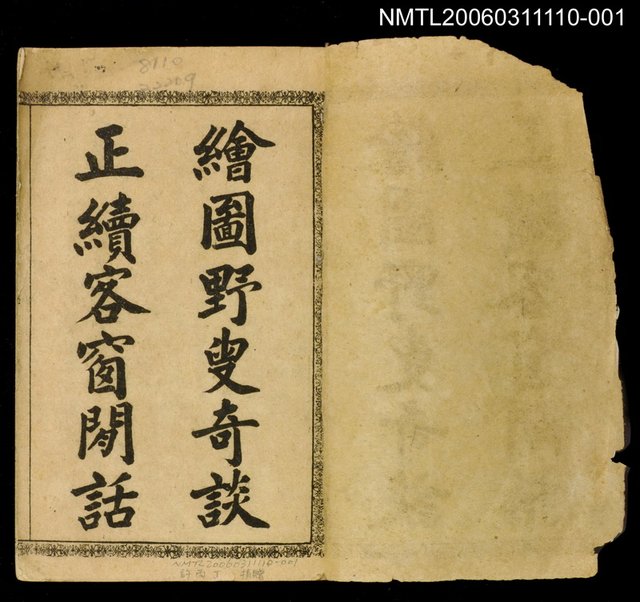 NMTL20060311110-001
8110
2209
繪圖野叟奇談
正續客窗閒話
NMTL20060311110-001
許丙丁 捐贈